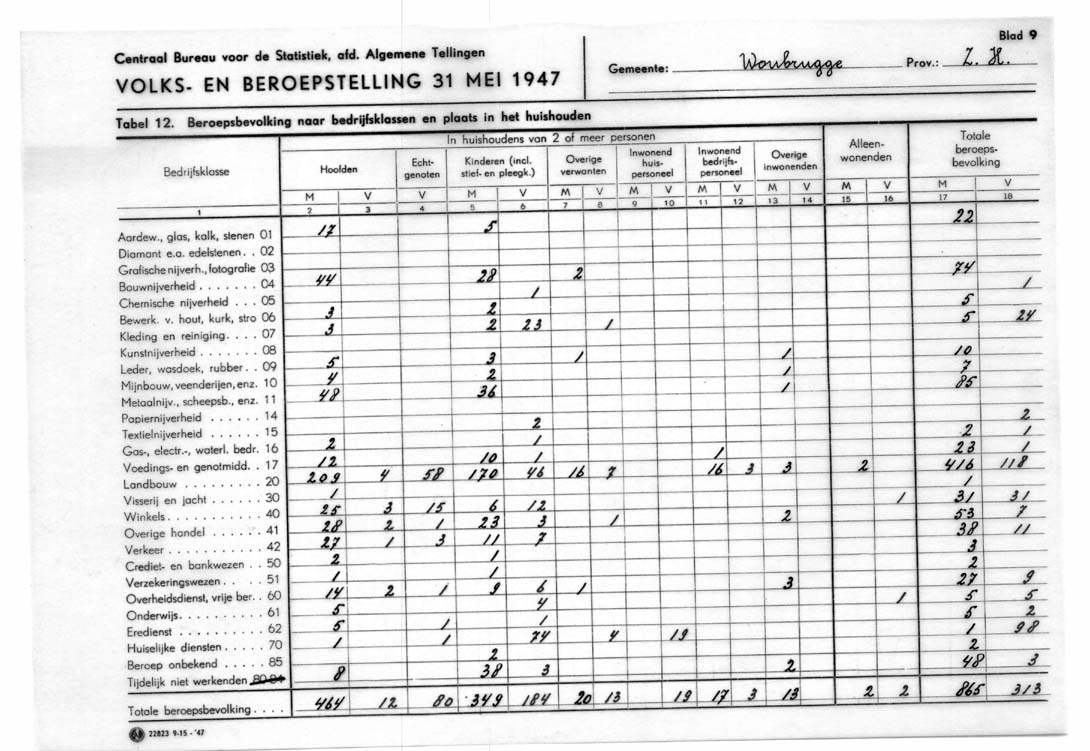 Blad 9
Centraal Bureau voor de Statistiek, afd. Algemene Tellingen
VOLKS- EN BEROEPSTELLING 31 MEI 1947
Gemeente: Woubrugge Prov.: Z. H.
Tabel 12. Beroepsbevolking naar bedrijfsklassen en plaats in het huishouden
In huishoudens van 2 of meer personen
Bedrijfsklasse Hoofden Echt-genoten Kinderen (incl. stief- en pleegk.) Overige verwanten Inwonend huis-personeel Inwonend bedrijfs-personeel Overige inwonenden Alleen-wonenden Totale beroeps-bevolking
M V V M V M V M V M V M V M V M V
1 2 3 4 5 6 7 8 9 10 11 12 13 14 15 16 17 18
Aardew., glas, kalk, stenen 01 17 5 22
Diamant e.a. edelstenen. . 02
Grafische nijverh., fotografie 03
Bouwnijverheid . . . . . . . 04 44 28 2 74
Chemische nijverheid . . . 05 1 1
Bewerk. v. hout, kurk, stro 06 3 2 5
Kleding en reiniging. . . . 07 3 2 23 1 5 24
Kunstnijverheid . . . . . . . 08
Leder, wasdoek, rubber. . 09 5 3 1 1 10
Mijnbouw, veenderijen, enz. 10 4 2 1 7
Metaalnijv., scheepsb., enz. 11 48 36 1 85
Papiernijverheid . . . . . . 14
Textielnijverheid . . . . . . 15 2 2
Gas-, electr.-, waterl. bedr. 16 2 1 2 1
Voedings- en genotmidd. . 17 12 10 1 1 23 1
Landbouw . . . . . . . . . 20 209 4 58 170 46 16 7 16 3 3 2 416 118
Visserij en jacht . . . . . . 30 1 1
Winkels . . . . . . . . . . . 40 25 3 15 6 12 1 31 31
Overige handel . . . . . . 41 28 2 1 23 3 1 2 53 7
Verkeer . . . . . . . . . . . 42 27 1 3 11 7 38 11
Crediet- en bankwezen . . 50 2 1 3
Verzekeringswezen . . . . 51 1 1 2
Overheidsdienst, vrije ber. . 60 14 2 1 9 6 1 3 27 9
Onderwijs. . . . . . . . . . 61 5 4 1 5 5
Eredienst . . . . . . . . . . 62 5 1 1 5 2
Huiselijke diensten . . . . . 70 1 1 74 4 19 1 98
Beroep onbekend . . . . . 85 2 2
Tijdelijk niet werkenden 80-84 8 38 3 2 48 3
Totale beroepsbevolking . . . . 464 12 80 349 184 20 13 19 17 3 13 2 2 865 313
22823 9-15 - '47